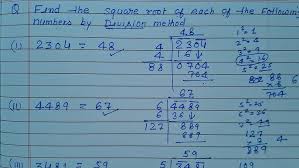 Q Find the square root of each of the following
numbers by Division method
(i) 2304 = 48
48
4 2304
4 16↓
88 0704
704
1²=1
2²=4
3²=9
4²=16
5²=25
(ii) 4489 = 67
67
6 4489
6 36↓
127 889
889
127
889
(iii) 3481 = 59
59
5 3481